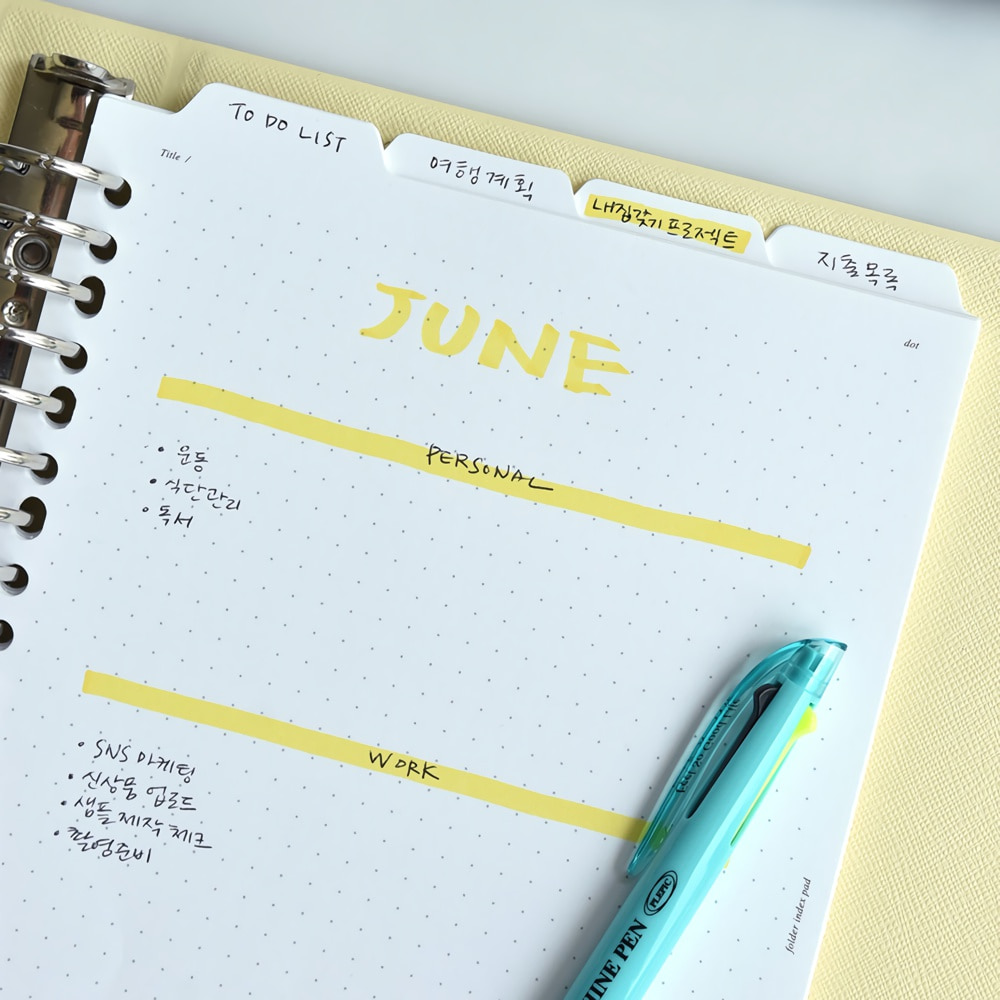 TO DO LIST
여행계획
내집갖기프로젝트
지출목록
Title /
dot
JUNE
PERSONAL
• 운동
• 식단관리
• 독서
WORK
• SNS 마케팅
• 신상품 업로드
• 샘플 제작 체크
• 촬영준비
PLEPIC
HINE PEN
folder index pad